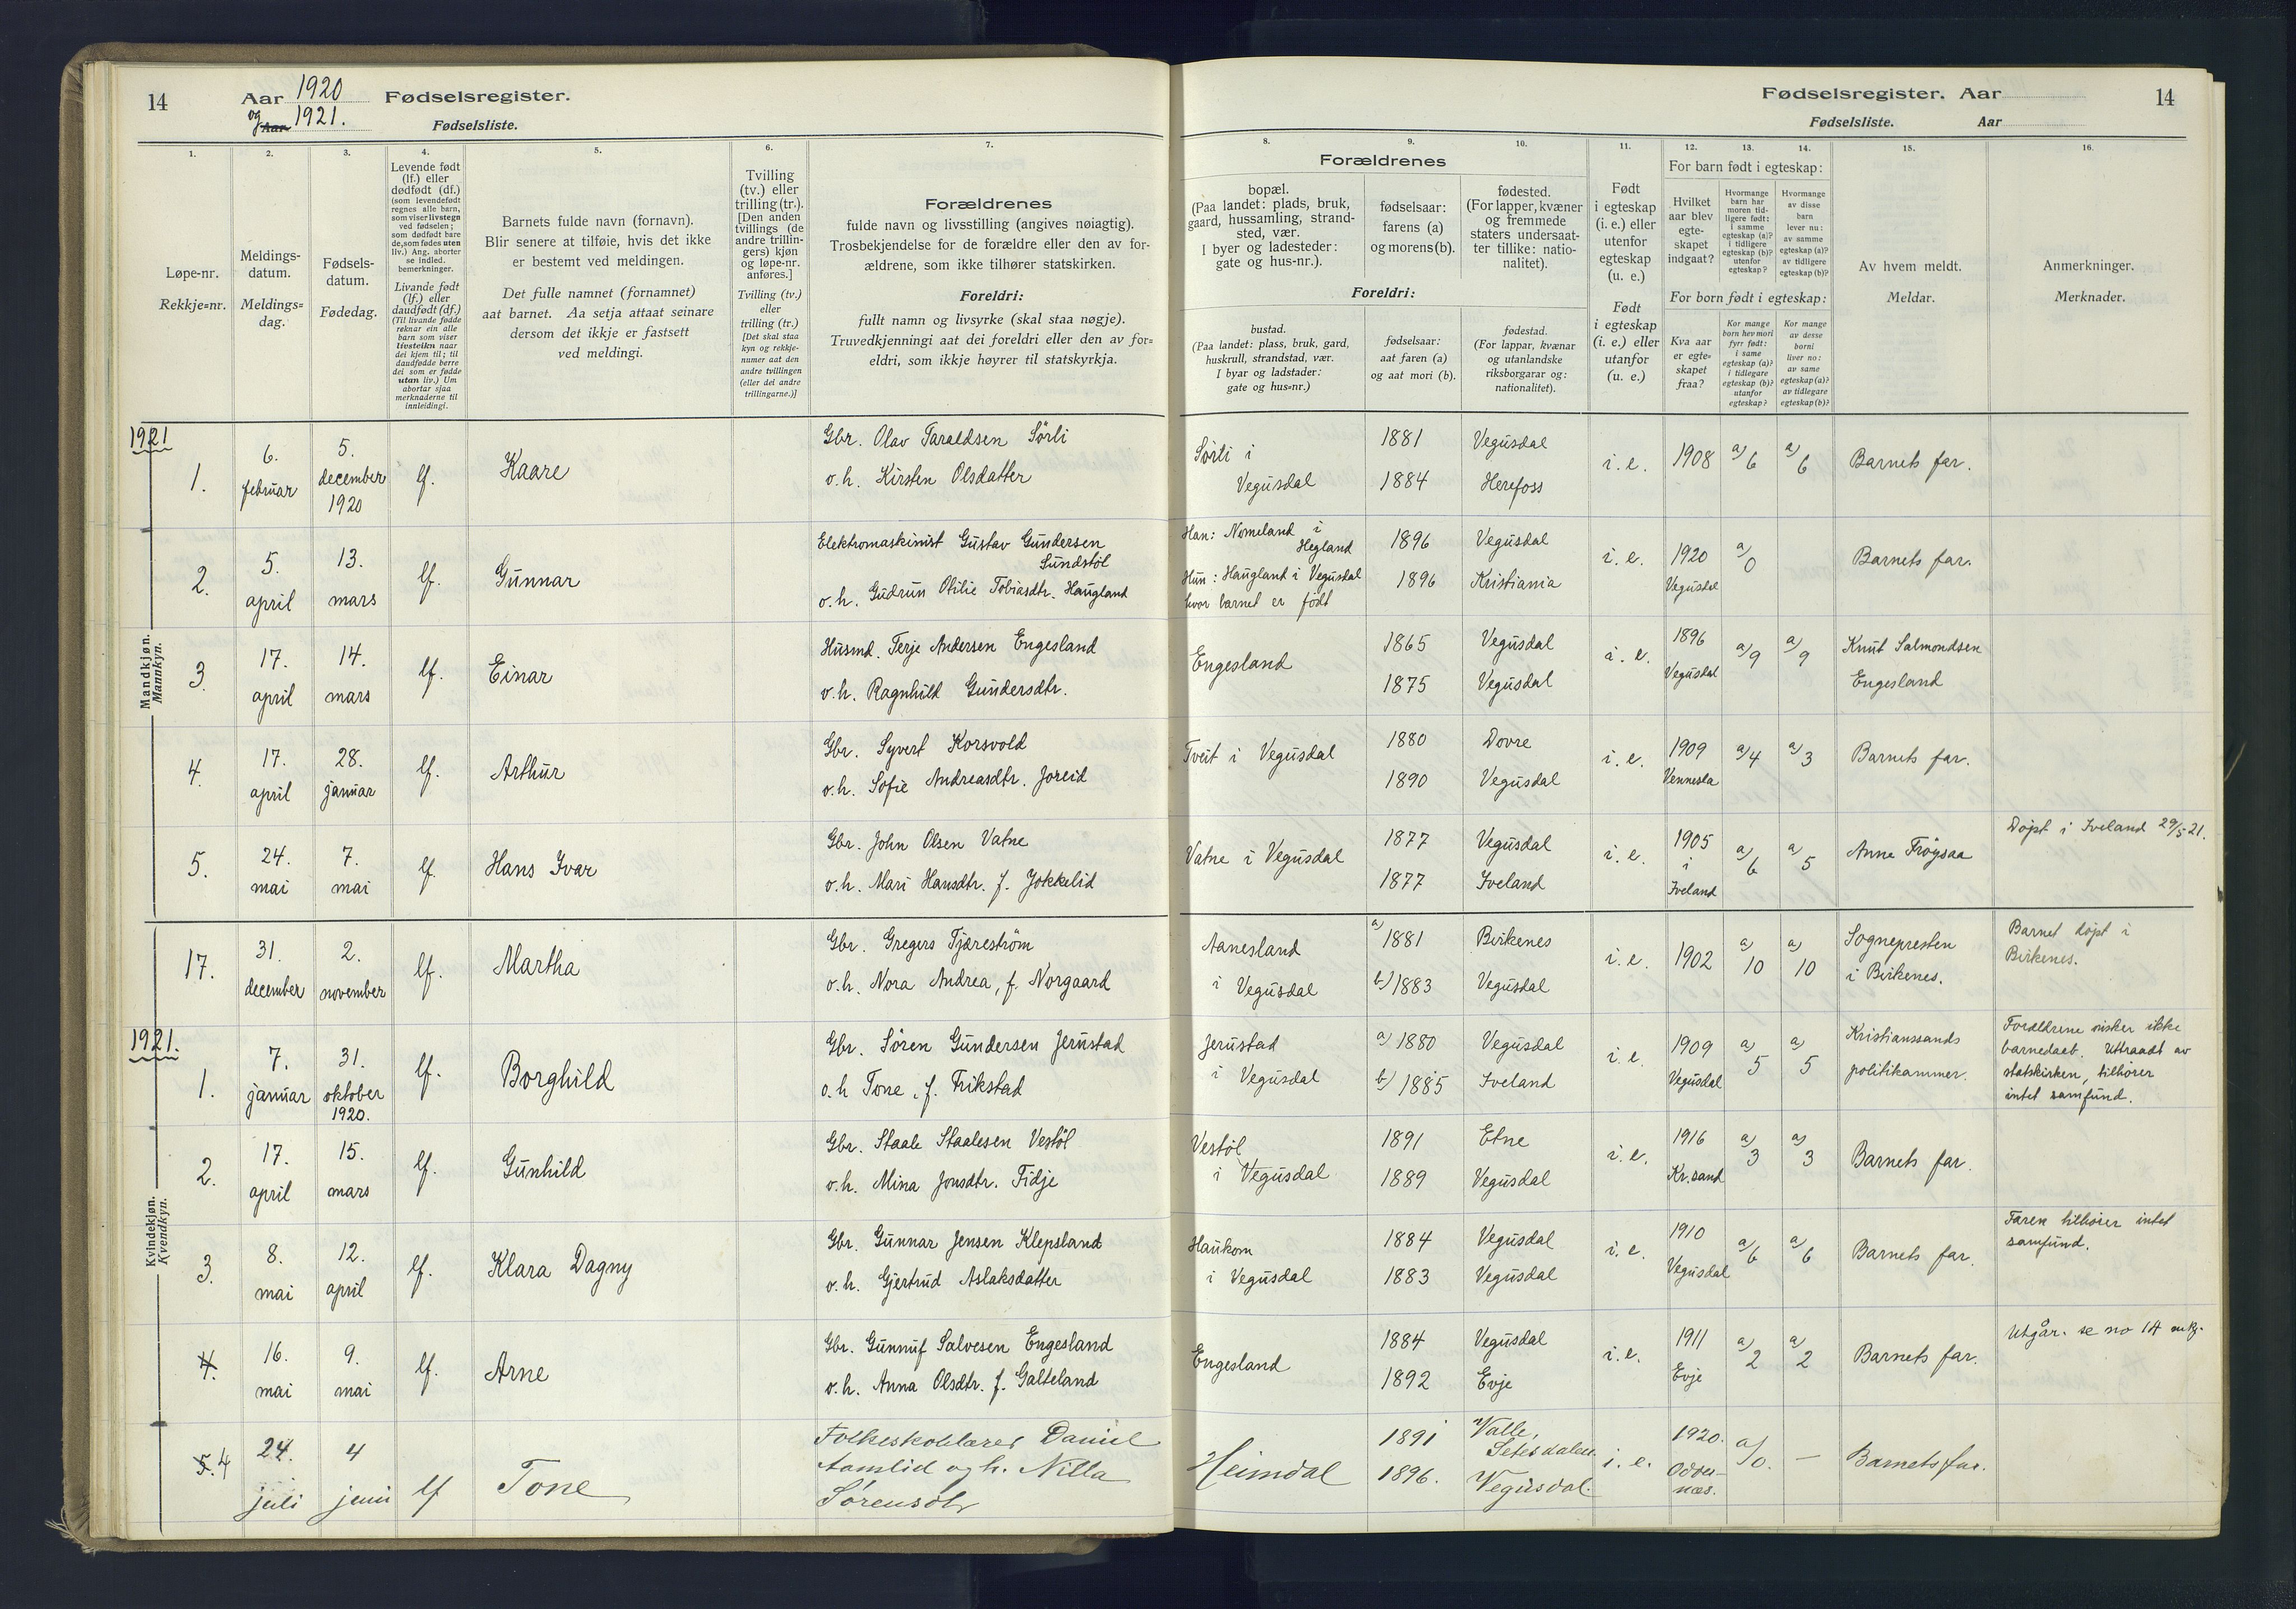 14
Aar 1920 Fødselsregister.
og Aar 1921.
Fødselsliste.
Fødselsregister. Aar
14
Fødselsliste. Aar
1.
Løpe-nr.
Rekkje=nr.
2.
Meldings-
datum.
Meldings=
dag.
3.
Fødsels-
datum.
Fødedag.
4.
Levende født
(lf.) eller
dødfødt (df.)
(som levendefødt
regnes alle barn,
som viser livstegn
ved fødselen;
som dødfødt bare
de, som fødes uten
liv.) Ang. aborter
se indled.
bemerkninger.
Livande født
(lf.) eller
daudfødt (df.)
(Til livande fødde
reknar ein alle
barn som viser
livsteikn naar
dei kjem til; til
daudfødde berre
dei som er fødde
utan liv.) Um
abortar sjaa
merknaderne til
innleidingi.
5.
Barnets fulde navn (fornavn).
Blir senere at tilføie, hvis det ikke
er bestemt ved meldingen.
Det fulle namnet (fornamnet)
aat barnet. Aa setja attaat seinare
dersom det ikkje er fastsett
ved meldingi.
6.
Tvilling
(tv.) eller
trilling (tr.).
[Den anden
tvillings (de
andre trillin-
gers) kjøn
og løpe-nr.
anføres.]
Tvilling (tv.)
eller
trilling (tr.)
[Det skal staa
kyn og rekkje-
numer aat den
andre tvillingen
(eller dei andre
trillingarne.)]
7.
Forældrenes
fulde navn og livsstilling (angives nøiagtig).
Trosbekjendelse for de forældre eller den av for-
ældrene, som ikke tilhører statskirken.
Foreldri:
fullt namn og livsyrke (skal staa nøgje).
Truvedkjenningi aat dei foreldri eller den av for=
eldri, som ikkje høyrer til statskyrkja.
Forældrenes
8.
bopæl.
(Paa landet: plads, bruk,
gaard, hussamling, strand-
sted, vær.
I byer og ladesteder:
gate og hus-nr.).
Foreldri:
bustad.
(Paa landet: plass, bruk, gard,
huskrull, strandstad, vær.
I byar og ladstader:
gate og hus=nr.)
9.
fødselsaar:
farens (a)
og morens (b).
fødselsaar:
aat faren (a)
og aat mori (b).
10.
fødested.
(For lapper, kvæner
og fremmede
staters undersaat-
ter tillike: natio-
nalitet).
fødestad.
(For lappar, kvænar
og utanlandske
riksborgarar og:
nationalitet).
11.
Født
i egteskap
(i. e.) eller
utenfor
egteskap
(u. e.)
Født
i egteskap
(i. e.) eller
utanfor
(u. e.)
For barn født i egteskap:
12.
Hvilket
aar blev
egte-
skapet
indgaat?
For born født i egteskap:
Kva aar
er egte=
skapet
fraa?
13.
Hvormange
barn har
moren tid-
ligere født:
i samme
egteskap (a)?
i tidligere
egteskap (b)?
utenfor
egteskap?
Kor mange
born hev mori
fyrr født:
i same
egteskap (a)?
i tidlegare
egteskap (b)?
utanfor
egteskap?
14.
Hvormange
av disse
barn
lever nu:
av samme
egteskap (a)?
av tidligere
egteskap (b)?
Kor mange
av desse
borni
liver no:
av same
egteskap (a)?
av tidlegare
egteskap (b)?
15.
Av hvem meldt.
Meldar.
16.
Anmerkninger.
Merknader.
Mandkjøn.
Mannkyn.
1921
1. 6. februar 5. december 1920 lf. Kaare
Gbr. Olav Taraldsen Sørli
o.h. Kirsten Olsdatter
Sørli i Vegusdal 1881 1884 Vegusdal Herefoss i. e. 1908 a/6 a/6 Barnets far.
2. 5. april 13. mars lf. Gunnar
Elektromaskinist Gustav Gundersen
Sundstöl
o.h. Gudrun Otilie Tobiasdtr. Haugland
Han: Nomeland i
Hegland
Hun: Haugland i Vegusdal
hvor barnet er født
1896 1896 Vegusdal Kristiania i. e. 1920 Vegusdal a/0 Barnets far.
3. 17. april 14. mars lf. Einar
Husmd. Terje Andersen Engesland
o.h. Ragnhild Gundersdtr.
Engesland 1865 1875 Vegusdal Vegusdal i. e. 1896 Vegusdal a/9 a/9 Knut Salmondsen
Engesland
4. 17. april 28. januar lf. Arthur
Gbr. Syvert Korsvold
o.h. Sofie Andreasdtr. Joreid
Tveit i Vegusdal 1880 1890 Dovre Vegusdal i. e. 1909 Vennesla a/4 a/3 Barnets far.
5. 24. mai 7. mai lf. Hans Ivar
Gbr. John Olsen Vatne
o.h. Mari Hansdtr. f. Jokkelid
Vatne i Vegusdal 1877 1877 Vegusdal Iveland i. e. 1905 i Iveland a/6 a/5 Anne Frøysaa
Døpt i Iveland 29/5 21.
Kvindekjøn.
Kvendkyn.
17. 31. december 2. november lf. Martha
Gbr. Gregers Tjæreström
o.h. Nora Andrea, f. Norgaard
Aanesland
i Vegusdal a) 1881 b) 1883 Birkenes Vegusdal i. e. 1902 a/10 a/10 Sognepresten
i Birkenes.
Barnet døpt i
Birkenes.
1921.
1. 7. januar 31. oktober 1920. lf. Borghild
Gbr. Sören Gundersen Jerustad
o.h Tone, f. Frikstad
Jerustad
i Vegusdal a) 1880 b) 1885 Vegusdal Iveland i. e. 1909 Vegusdal a/5 a/5 Kristianssands
politikammer.
Forældrene ønsker ikke
barnedaab. Uttraadt av
statskirken, tilhører
intet samfund.
2. 17. april 15. mars lf. Gunhild
Gbr. Staale Staalesen Vestöl
o.h. Mina Jonsdtr. Fidje
Vestöl
i Vegusdal 1891 1889 Etne Vegusdal i. e. 1916 Kr.sand a/3 a/3 Barnets far.
3. 8. mai 12. april lf. Klara Dagny
Gbr. Gunnar Jensen Klepsland
o.h. Gjertrud Aslaksdatter
Haukom
i Vegusdal 1884 1883 Vegusdal Vegusdal i. e. 1910 Vegusdal a/6 a/6 Barnets far.
Faren tilhører intet
samfund.
4. 16. mai 9. mai lf. Arne
Gbr. Gunnuf Salvesen Engesland
o.h. Anna Olsdtr. f. Galteland
Engesland 1884 1892 Vegusdal Evje i. e. 1911 Evje a/2 a/2 Barnets far.
Utgår. se no 14 mkj.
5. 4 24. juli 4 juni lf Tone
Folkeskolelærer Daniel
Aamlid og h. Nilla
Sørensdtr
Heimdal 1891 1896. Valle,
Setesdalen. Vegusdal. i. e. 1920. Oddernæs. a/0. — Barnets far.